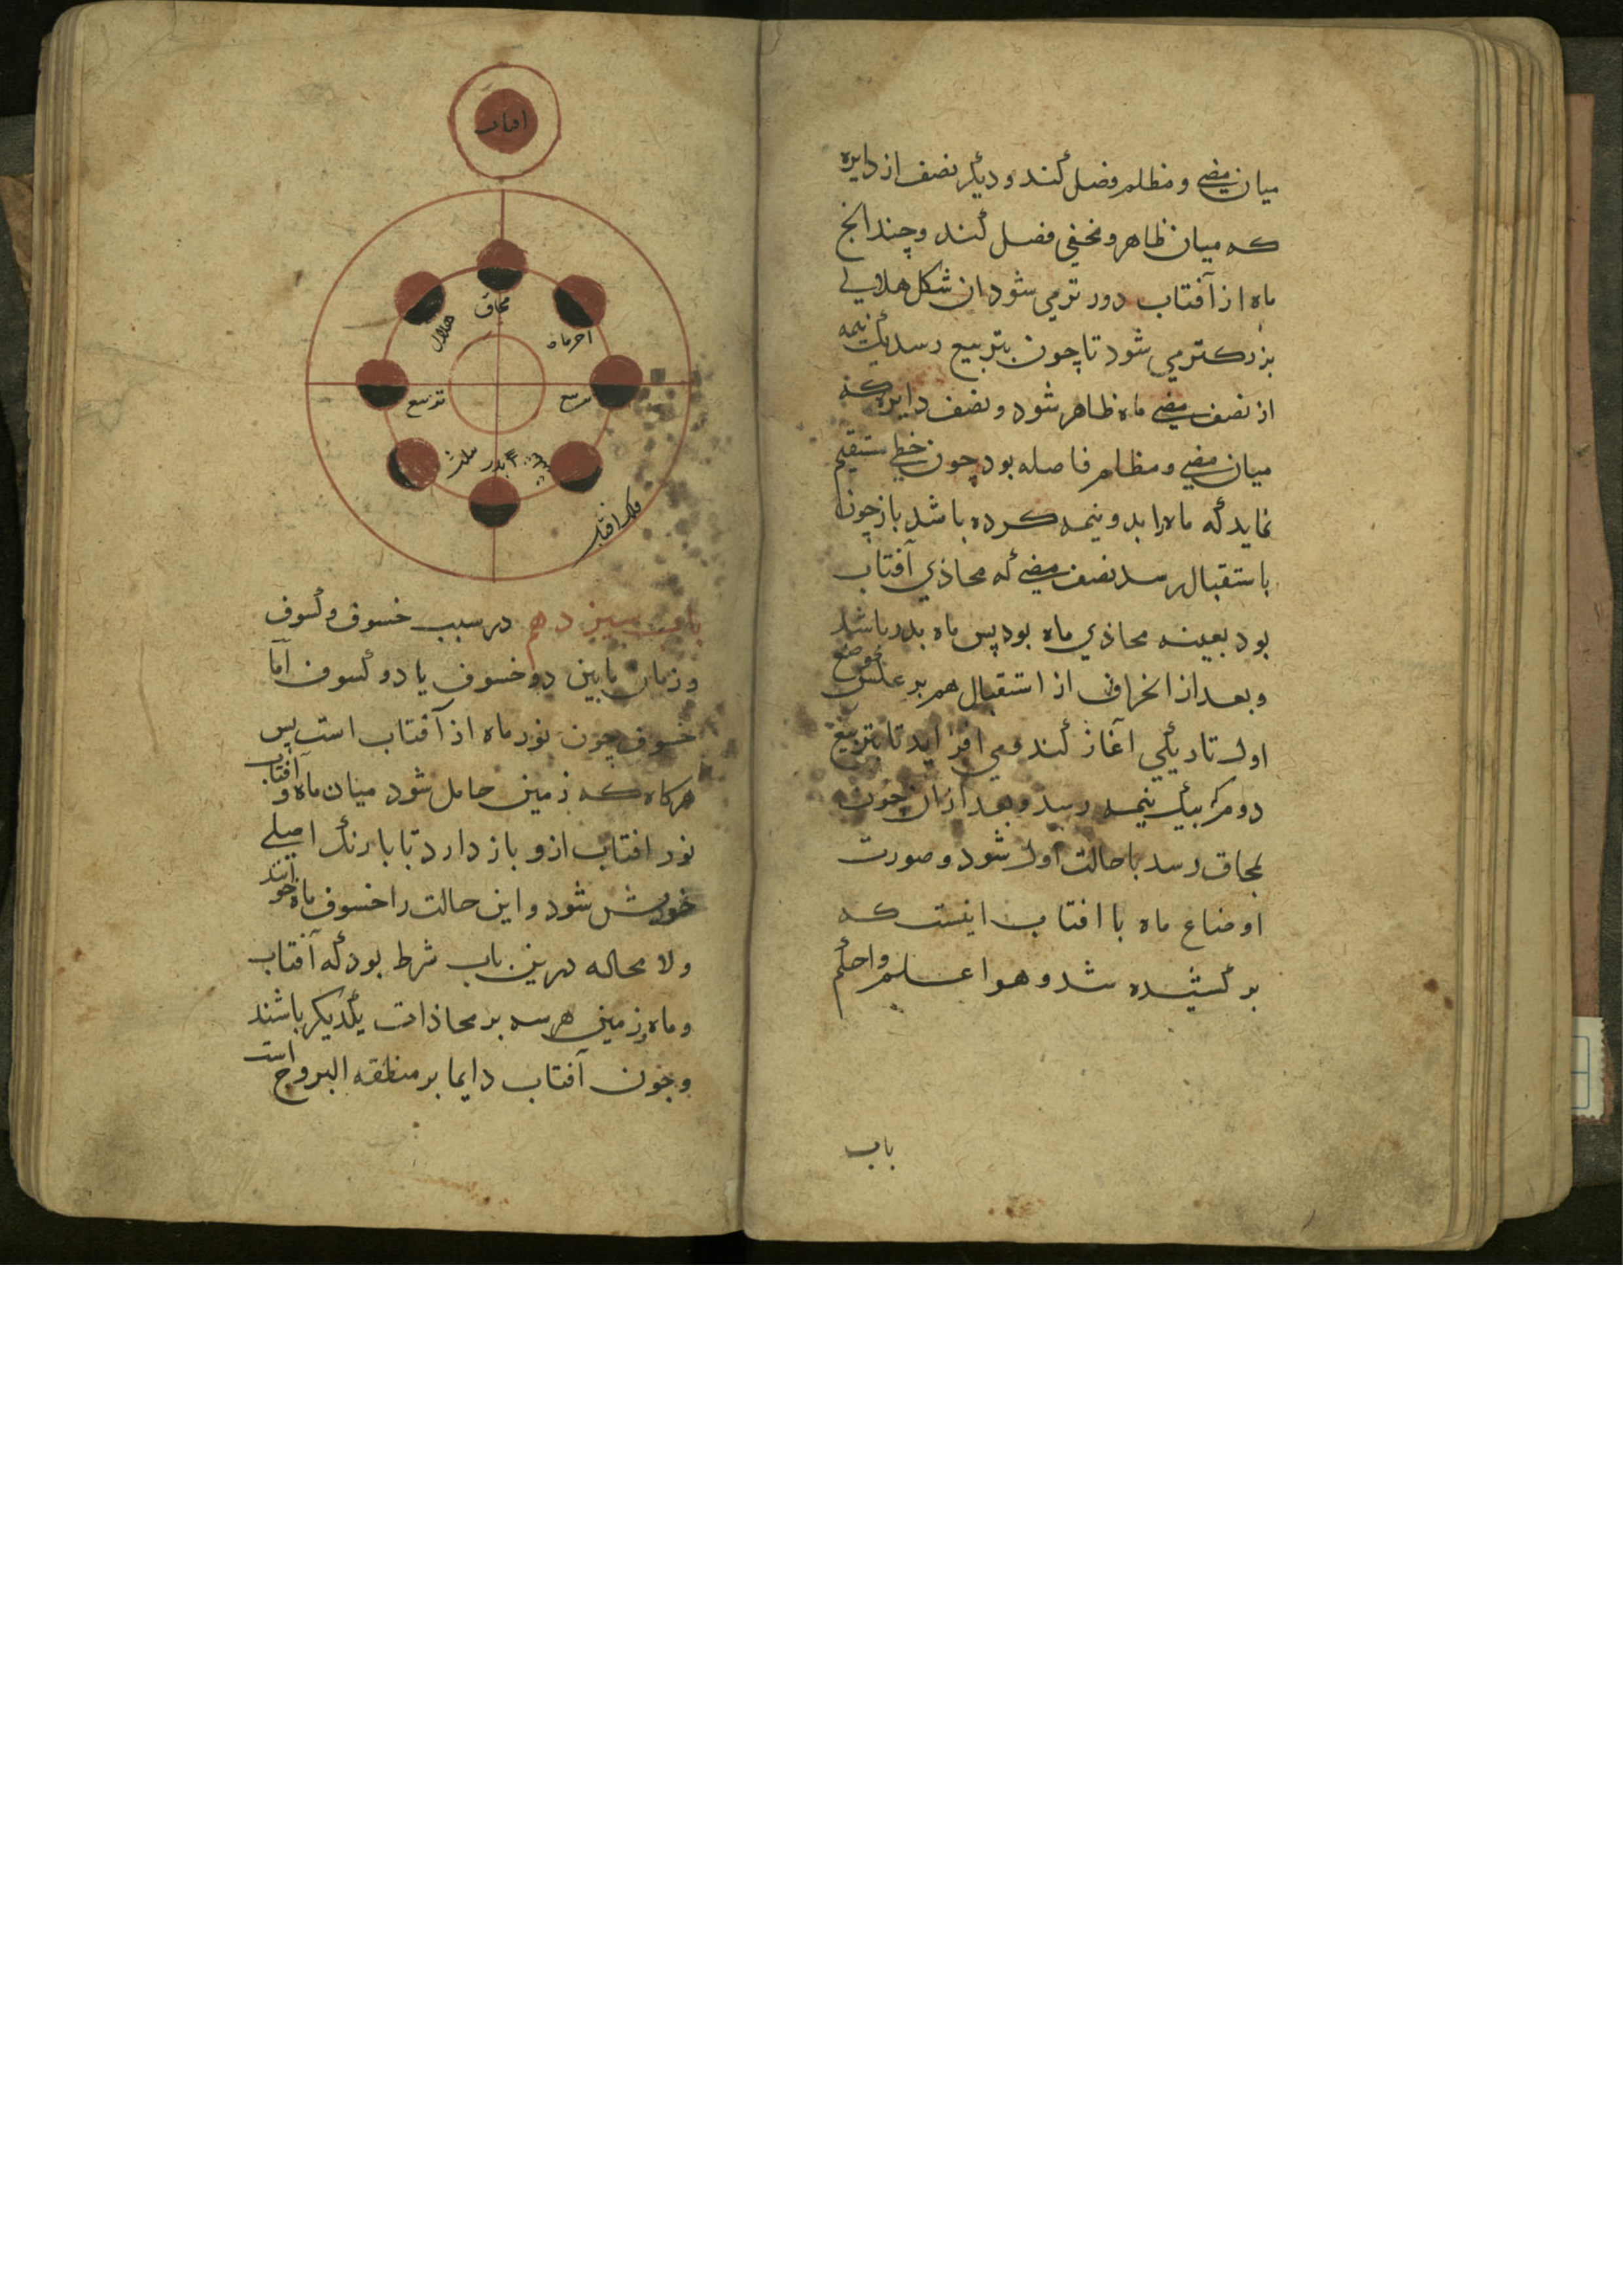 میان مضیء و مظلم فصل کند و دیگر نصف از دایره
که میان ظاهر و مخفی فصل کند و چندانچ
ماه از آفتاب دور تر می شود ان شکل هلالی
بزرکتر می شود تا چون بتربیع رسد یک نیمه
از نصف مضیء ماه ظاهر شود و نصف دایره که
میان مضیء و مظلم فاصله بود چون خطی مستقیم
نماید که ماه را بدو نیمه کرده باشد باز چون
باستقبال رسد نصف مضیء که محاذی آفتاب
بود بعینه محاذی ماه بود پس ماه بدر باشد
و بعد از انحراف از استقبال هم بر عکس موضع
اول تاریکی آغاز کند و می افزاید تا بتربیع
دوم که بیک نیمه رسد و بعد از ان چون
بمحاق رسد با حالت اول شود و صورت
اوضاع ماه با افتاب اینست که
بر کشیده شد و هو اعلم و احکم
باب
افتاب
محاق
هلال
اخر ماه
تربیع
تربیع
بدر
فلک افتاب
باب سیزدهم در سبب خسوف و کسوف
و زمان مابین دو خسوف یا دو کسوف اما
خسوف چون نور ماه از آفتاب است پس
هرکاه که زمین حایل شود میان ماه و آفتاب
نور افتاب ازو باز دارد تا با رنک اصلی
خویش شود و این حالت را خسوف ماه خوانند
ولا محاله درین باب شرط بود که آفتاب
و ماه و زمین هر سه بر محاذات یکدیکر باشند
و چون آفتاب دایما بر منطقه البروج است